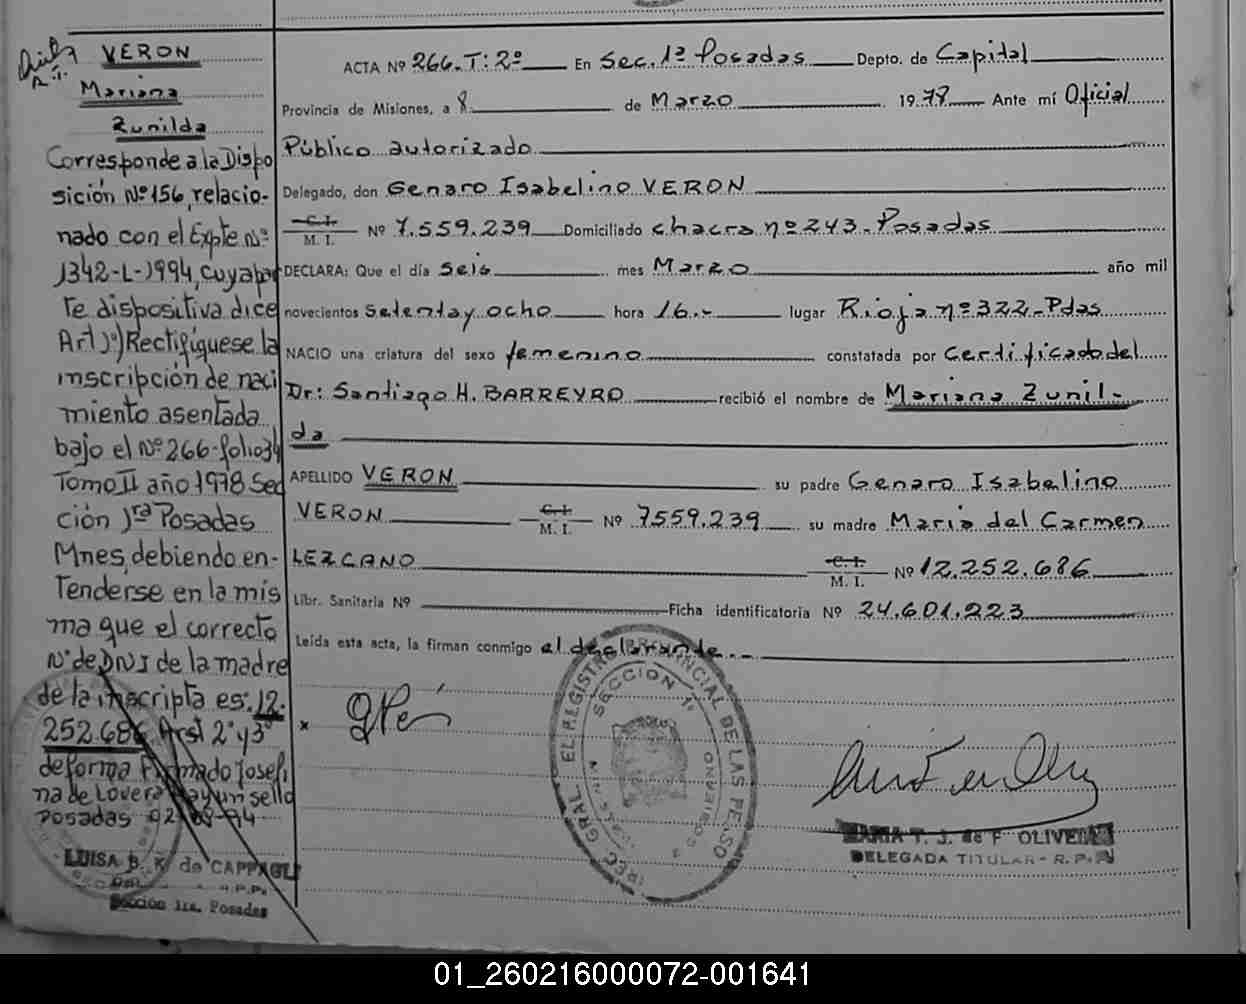 VERON
Mariana
Zunilda
Corresponde a la Dispo
sición Nº 156, relacio-
nado con el Expte Nº
1342-L-1994, cuya par
te dispositiva dice
Art 1º) Rectifíquese la
inscripción de naci
miento asentada
bajo el Nº 266-folio 34
Tomo II año 1978 Sec
ción 1ra Posadas
Mnes, debiendo en-
tenderse en la mis
ma que el correcto
Nº de DNI de la madre
de la inscripta es: 12.
252.686 Arst 2º y 3º
de forma Firmado Josefi
na de Lovera Hay un sello
Posadas 02-09-94
LUISA B. K de CAPPAGLI
Sección 1ra. Posadas
ACTA Nº 266. T: 2º En Sec. 1ª Posadas Depto. de Capital
Provincia de Misiones, a 8 de Marzo 1978 Ante mí Oficial
Público autorizado
Delegado, don Genaro Isabelino VERON
C. I.
M. I. Nº 7.559.239 Domiciliado chacra nº 243-Posadas
DECLARA: Que el día seis mes Marzo año mil
novecientos setenta y ocho hora 16.- lugar Rioja nº 322-Pdas
NACIO una criatura del sexo femenino constatada por certificado del
Dr: Santiago H. BARREYRO recibió el nombre de Mariana Zunil-
da
APELLIDO VERON su padre Genaro Isabelino
VERON C. I.
M. I. Nº 7559.239 su madre Maria del Carmen
LEZCANO C. I.
M. I. Nº 12.252.686
Libr. Sanitaria Nº Ficha identificatoria Nº 24.601.223
Leída esta acta, la firman conmigo el declarante.-
x
DIREC GRAL EL REGISTRO PROVINCIAL DE LAS PERSO
SECCION 1ª
MARIA T. J. de F OLIVEIRA
DELEGADA TITULAR - R. P. P.
01_260216000072-001641